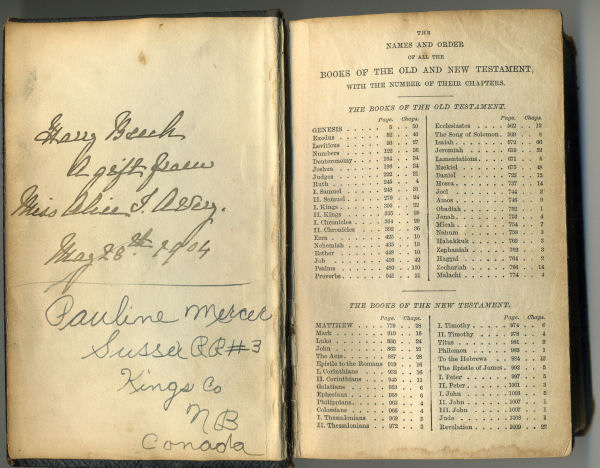 Harry Beech
A gift from
Miss Alice I. Avery.
May 28th 1904
Pauline Mercer
Sussex RR#3
Kings Co
NB
Canada
THE
NAMES AND ORDER
OF ALL THE
BOOKS OF THE OLD AND NEW TESTAMENT,
WITH THE NUMBER OF THEIR CHAPTERS.
THE BOOKS OF THE OLD TESTAMENT.
Page. Chaps.
GENESIS 5 50
Exodus 52 40
Leviticus 93 27
Numbers 122 36
Deuteronomy 164 34
Joshua 198 24
Judges 222 21
Ruth 245 4
I. Samuel 248 31
II. Samuel 279 24
I. Kings 305 22
II. Kings 335 25
I. Chronicles 364 29
II. Chronicles 392 36
Ezra 425 10
Nehemiah 435 13
Esther 449 10
Job 456 42
Psalms 480 150
Proverbs 542 31
Page. Chaps.
Ecclesiastes 562 12
The Song of Solomon 569 8
Isaiah 572 66
Jeremiah 619 52
Lamentations 671 5
Ezekiel 675 48
Daniel 722 12
Hosea 737 14
Joel 744 3
Amos 746 9
Obadiah 752 1
Jonah 753 4
Micah 754 7
Nahum 759 3
Habakkuk 760 3
Zephaniah 762 3
Haggai 764 2
Zechariah 766 14
Malachi 774 4
THE BOOKS OF THE NEW TESTAMENT.
Page. Chaps.
MATTHEW 779 28
Mark 810 16
Luke 830 24
John 863 21
The Acts 887 28
Epistle to the Romans 919 16
I. Corinthians 932 16
II. Corinthians 945 13
Galatians 953 6
Ephesians 958 6
Philippians 962 4
Colossians 966 4
I. Thessalonians 969 5
II. Thessalonians 972 3
Page. Chaps.
I. Timothy 974 6
II. Timothy 978 4
Titus 981 3
Philemon 983 1
To the Hebrews 984 13
The Epistle of James 993 5
I. Peter 997 5
II. Peter 1001 3
I. John 1003 5
II. John 1007 1
III. John 1007 1
Jude 1008 1
Revelation 1009 22